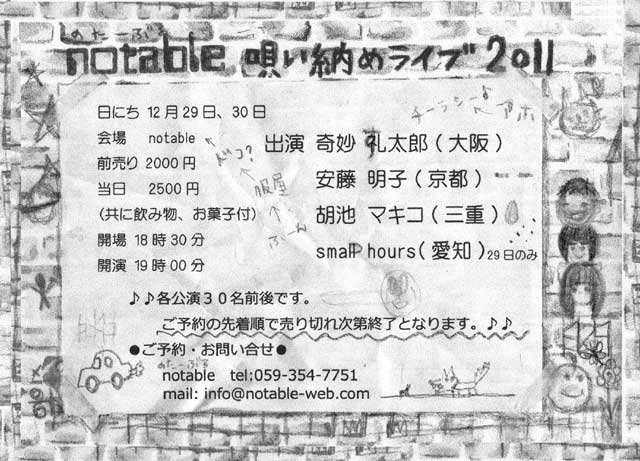 のたーぶる
notable 唄い納めライブ 2011
チーラシーよ
アホ
日にち 12月29日、30日
会場 notable
ドコ?
前売り 2000円
服屋
当日 2500円
(共に飲み物、お菓子付)
ふーん
開場 18時30分
開演 19時00分
出演 奇妙 礼太郎(大阪)
安藤 明子(京都)
胡池 マキコ(三重)
small hours(愛知)29日のみ
♪♪各公演30名前後です。
ご予約の先着順で売り切れ次第終了となります。♪♪
●ご予約・お問い合せ●
のたーぶる
notable tel:059-354-7751
mail: info@notable-web.com